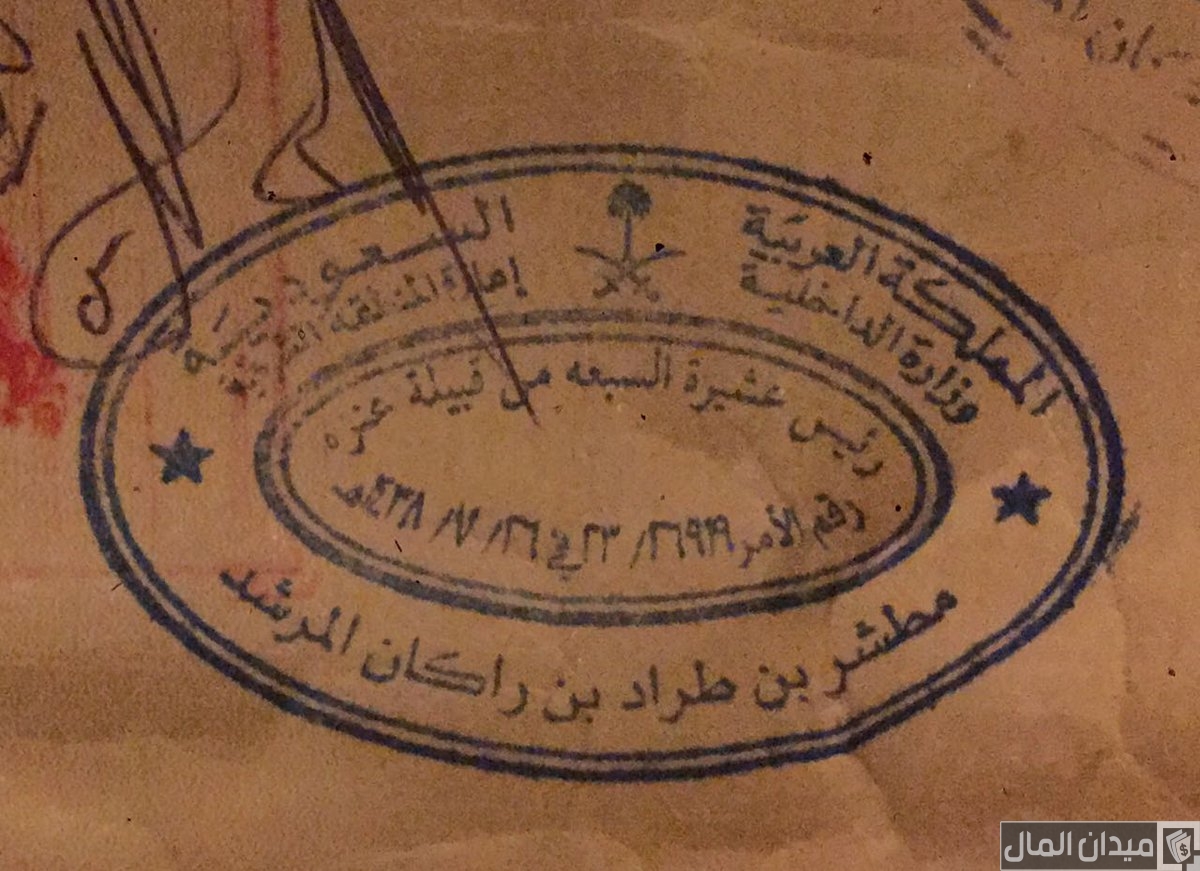 المملكة العربية السعودية
وزارة الداخلية إمارة المنطقة
رئيس عشيرة السبعه من قبيلة عنزه
رقم الأمر ٢٦٩١٩/ ٢٣ في ٢٦/ ٧/ ١٤٣٨هـ
مطشر بن طراد بن راكان المرشد
ميدان المال